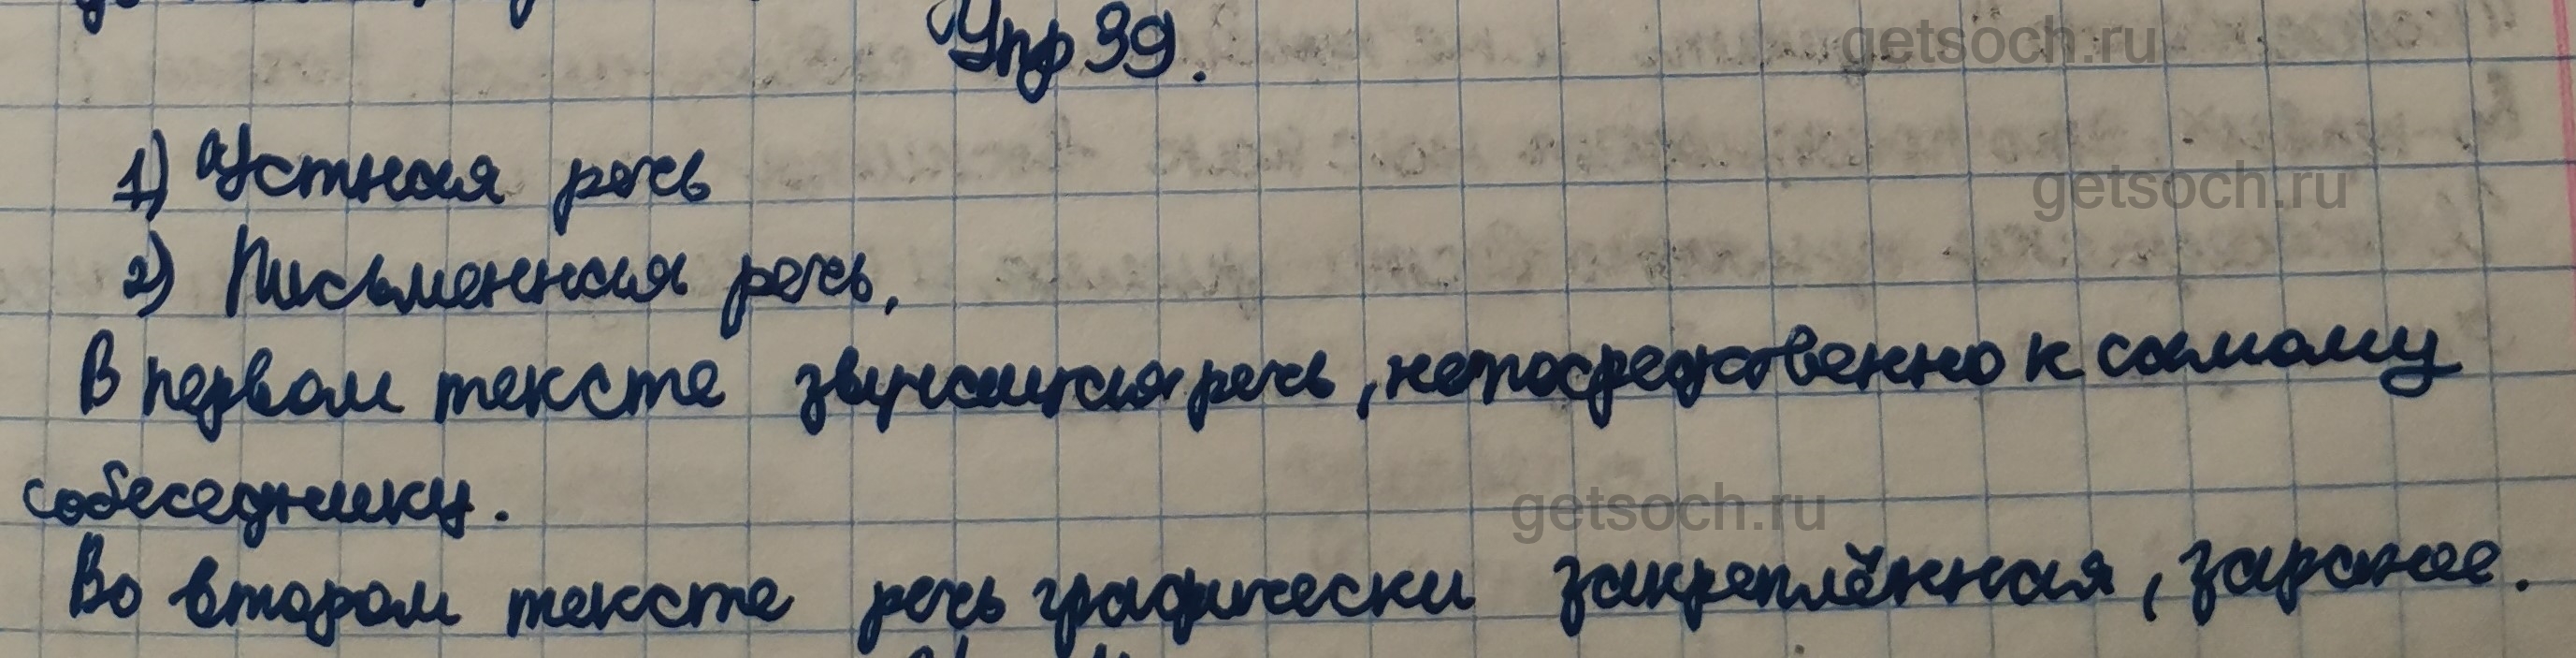 Упр 39.
1) Устная речь
2) Письменная речь.
В первом тексте звучащая речь, непосредственно к самому
собеседнику.
Во втором тексте речь графически закреплённая, заранее.
getsoch.ru
getsoch.ru
getsoch.ru